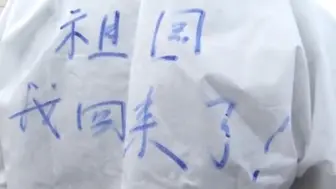 祖国
我回来了!